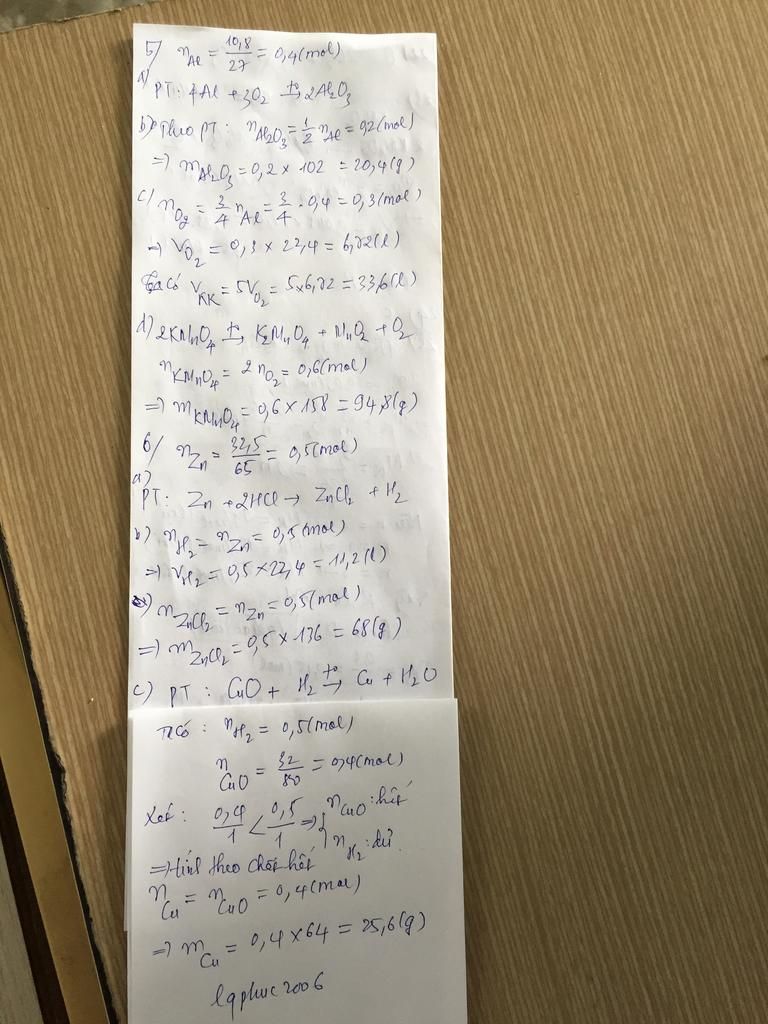 5/ nAl = 10,8/27 = 0,4 (mol)
a) PT: 4Al + 3O2 t° → 2Al2O3
b) Theo PT: nAl2O3 = 1/2 nAl = 0,2 (mol)
=> mAl2O3 = 0,2 x 102 = 20,4 (g)
c) nO2 = 3/4 nAl = 3/4 . 0,4 = 0,3 (mol)
=> VO2 = 0,3 x 22,4 = 6,72 (l)
Ta có VKK = 5VO2 = 5x6,72 = 33,6 (l)
d) 2KMnO4 t° → K2MnO4 + MnO2 + O2
nKMnO4 = 2 nO2 = 0,6 (mol)
=> mKMnO4 = 0,6 x 158 = 94,8 (g)
6/ nZn = 32,5/65 = 0,5 (mol)
a)
PT: Zn + 2HCl → ZnCl2 + H2
b) nH2 = nZn = 0,5 (mol)
=> VH2 = 0,5 x 22,4 = 11,2 (l)
nZnCl2 = nZn = 0,5 (mol)
=> mZnCl2 = 0,5 x 136 = 68 (g)
c) PT: CuO + H2 t° → Cu + H2O
Ta có: nH2 = 0,5 (mol)
nCuO = 32/80 = 0,4 (mol)
Xét: 0,4/1 < 0,5/1 => { nCuO: hết
nH2: dư
=> tính theo chất hết
nCu = nCuO = 0,4 (mol)
=> mCu = 0,4 x 64 = 25,6 (g)
lqphuc2006